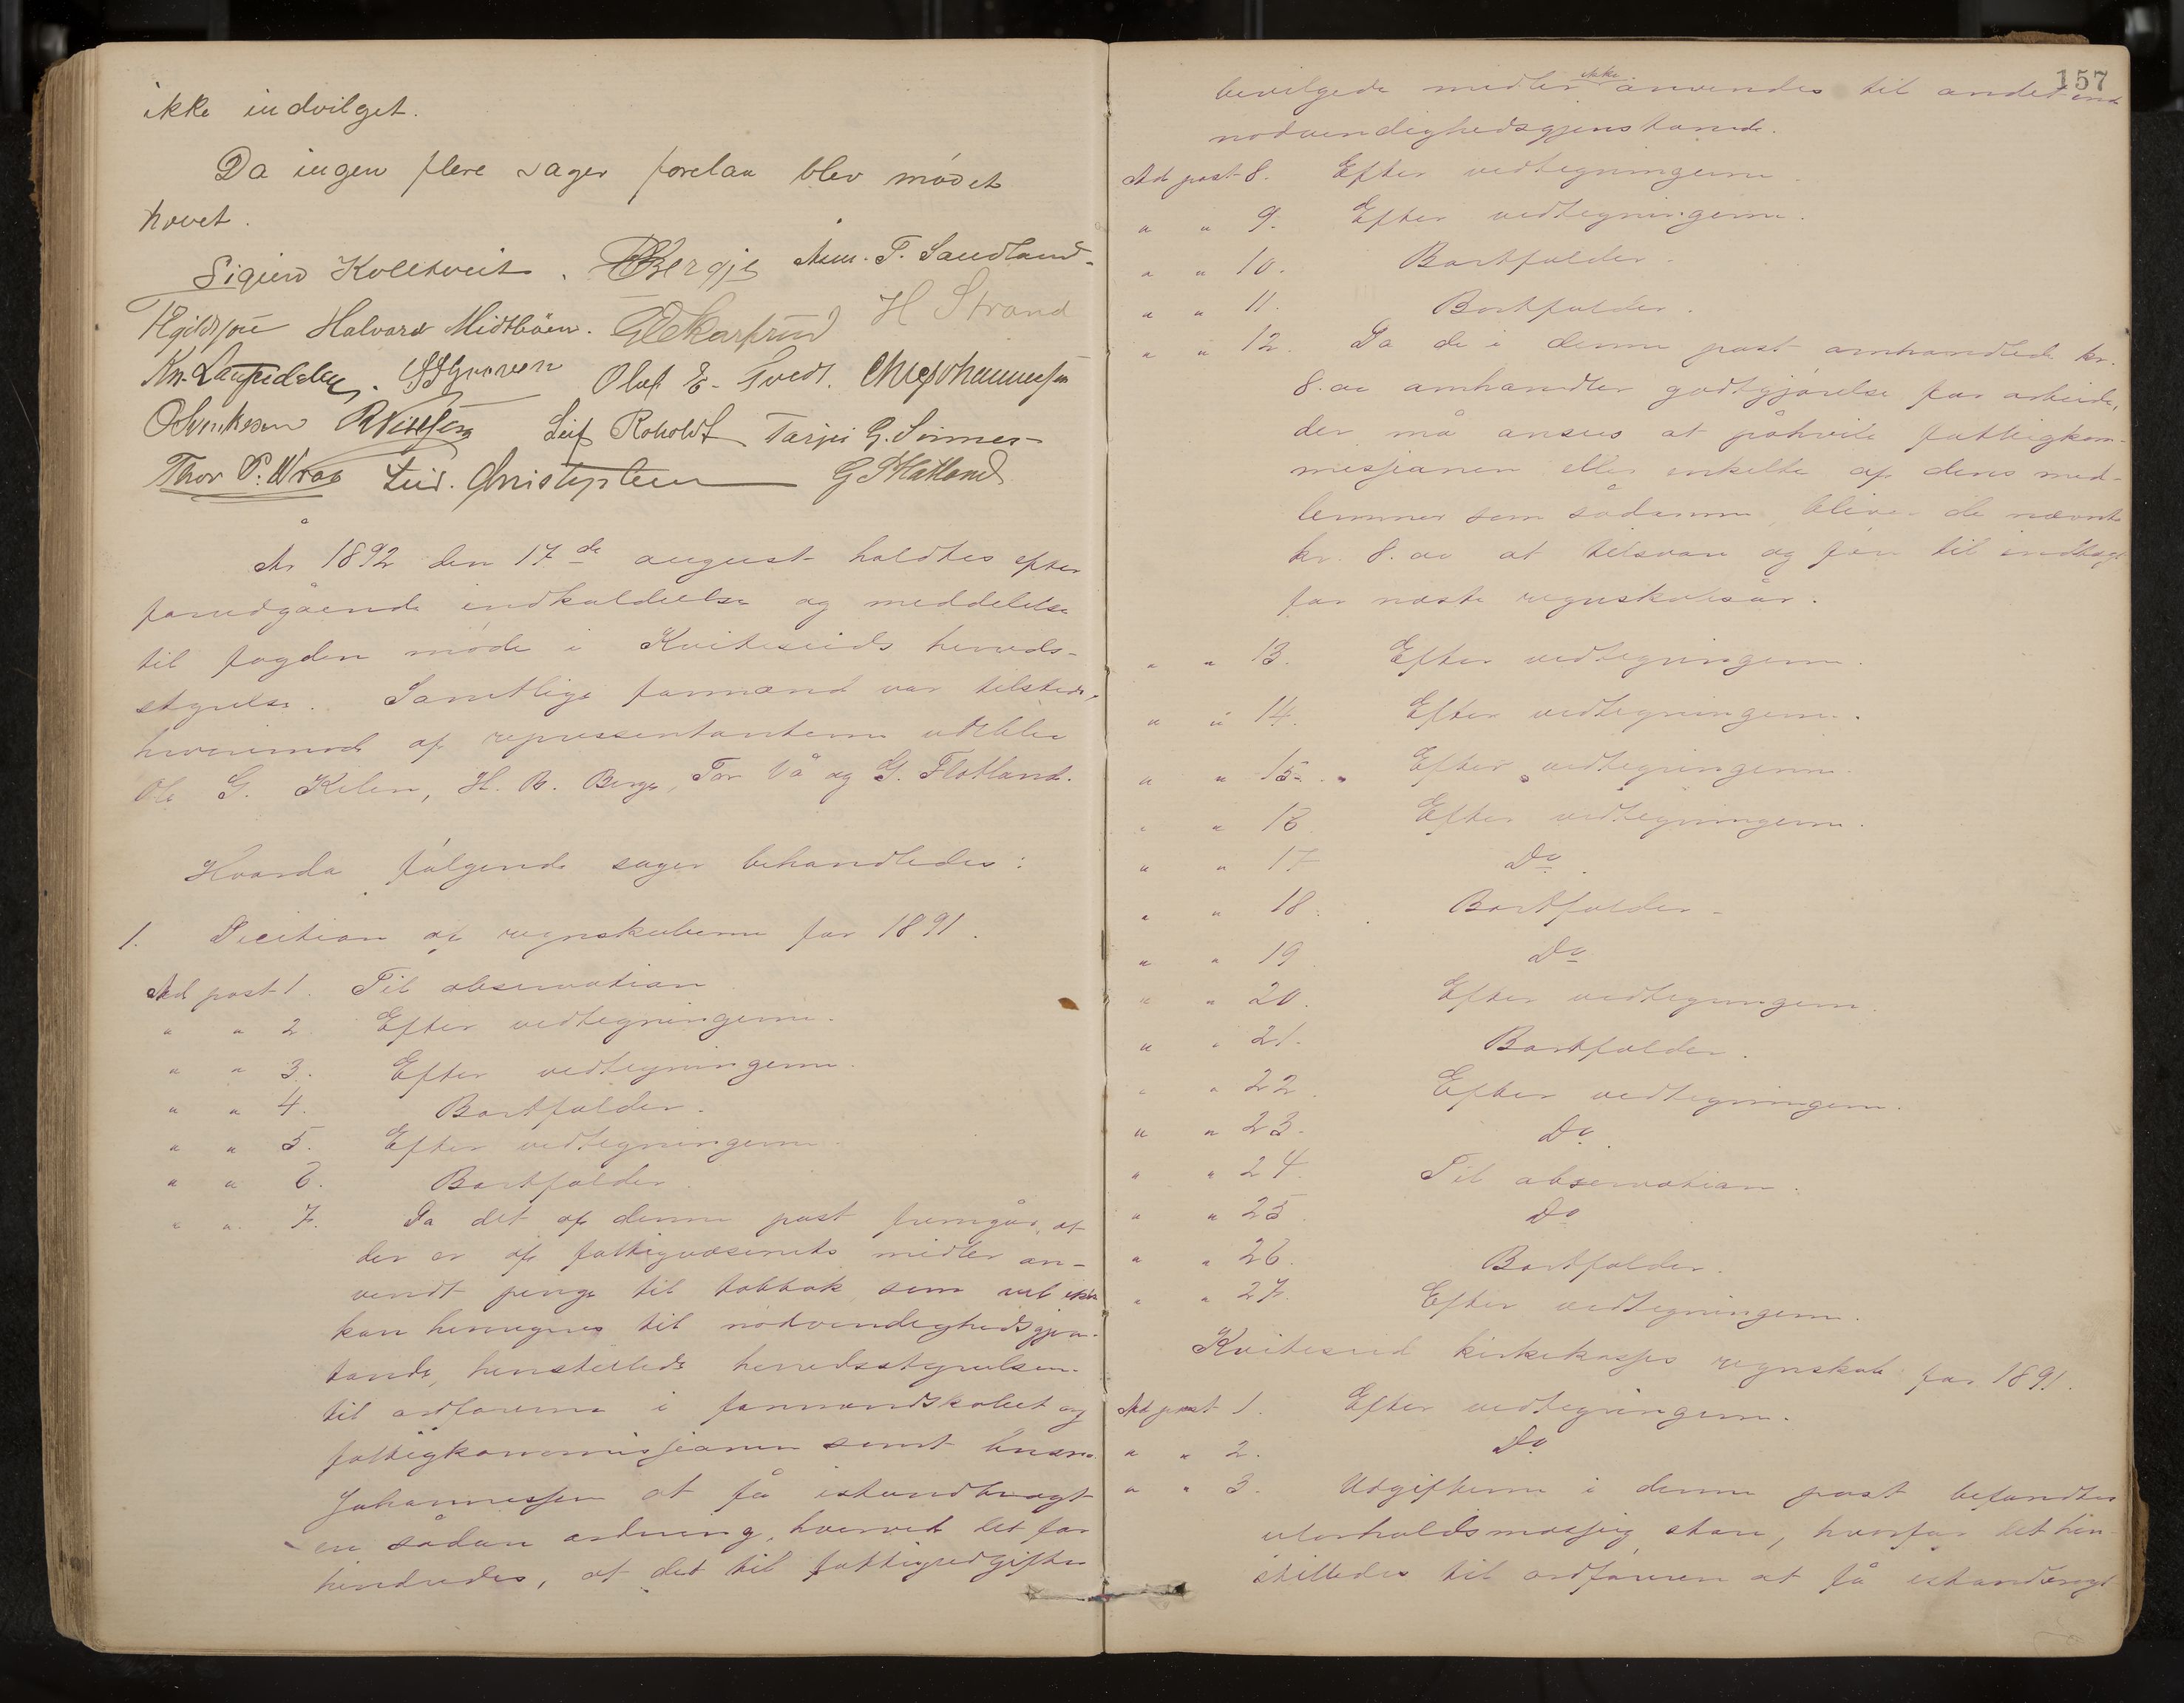 ikke indvilget.
Da ingen flere sager forelaa blev mødet
hævet.
Sigurd Kolltveit. Berge Aam. T. Sandland.
Halvard Midtbøen. H Strand
Kn. Olaf E. Tvedt.
Leif Roholdt Tarjei G.
Thor P. Wraa Lud. Christensen
År 1892 den 17de august holdtes efter
forudgående indkaldelse og meddelelse
til fogden møde i Kviteseids herreds-
styrelse. Samtlige formænd var tilstede,
hvorimod af repræsentanterne udeblev
Ole G. Kilen, H. R. Berge, Tor Vå og G. Flatland.
Hvorda følgende sager behandledes:
1. Decition af regnskaberne for 1891.
Ad post 1. Til observation
" " 2 Efter vedtegningerne.
" " 3. Efter vedtegningerne.
" " 4. Bortfalder.
" " 5. Efter vedtegningerne.
" " 6. Bortfalder.
" " 7. Da det af denne post fremgår, at
der er af fattigvæsenets midler an-
vendt penge til tobbak, som vel ikke
kan henregnes til nødvendighedsgjen-
stande, henstillede herredsstyrelsen
til ordførerne i formandskabet og
fattigkommissionen samt
Johannessen at få istandbragt
en sådan ordning, hvorved det for-
hindredes, at det til fattigudgifter
157
bevilgede midler ikke anvendes til andet end
nødvendighedsgjenstande.
Ad post 8. Efter vedtegningerne.
" " 9. Efter vedtegningerne.
" " 10. Bortfalder.
" " 11. Bortfalder.
" " 12. Da de i denne post omhandlede kr.
8.00 omhandler godtgjørelse for arbeide,
der må ansees at påhvile fattigkom-
missionen eller enkelte af dens med-
lemmer som sådanne, bliver de nævnte
kr. 8.00 at tilsvare og før til indtægt
for næste regnskabsår.
" " 13. Efter vedtegningerne.
" " 14. Efter vedtegningerne.
" " 15. Efter vedtegningerne.
" " 16 Efter vedtegningerne.
" " 17 Do.
" " 18. Bortfalder.
" " 19 Do
" " 20. Efter vedtegningerne.
" " 21. Bortfalder.
" " 22. Efter vedtegningerne.
" " 23. Do.
" " 24. Til observation.
" " 25 Do
" " 26. Bortfalder.
" " 27. Efter vedtegningerne.
Kviteseid kirkekasses regnskab for 1891.
Ad post 1. Efter vedtegningerne.
" " 2. Do
" " 3. Udgifterne i denne post befandtes
uforholdsmæssig store, hvorfor det hen-
stilledes til ordføreren at få istandbragt